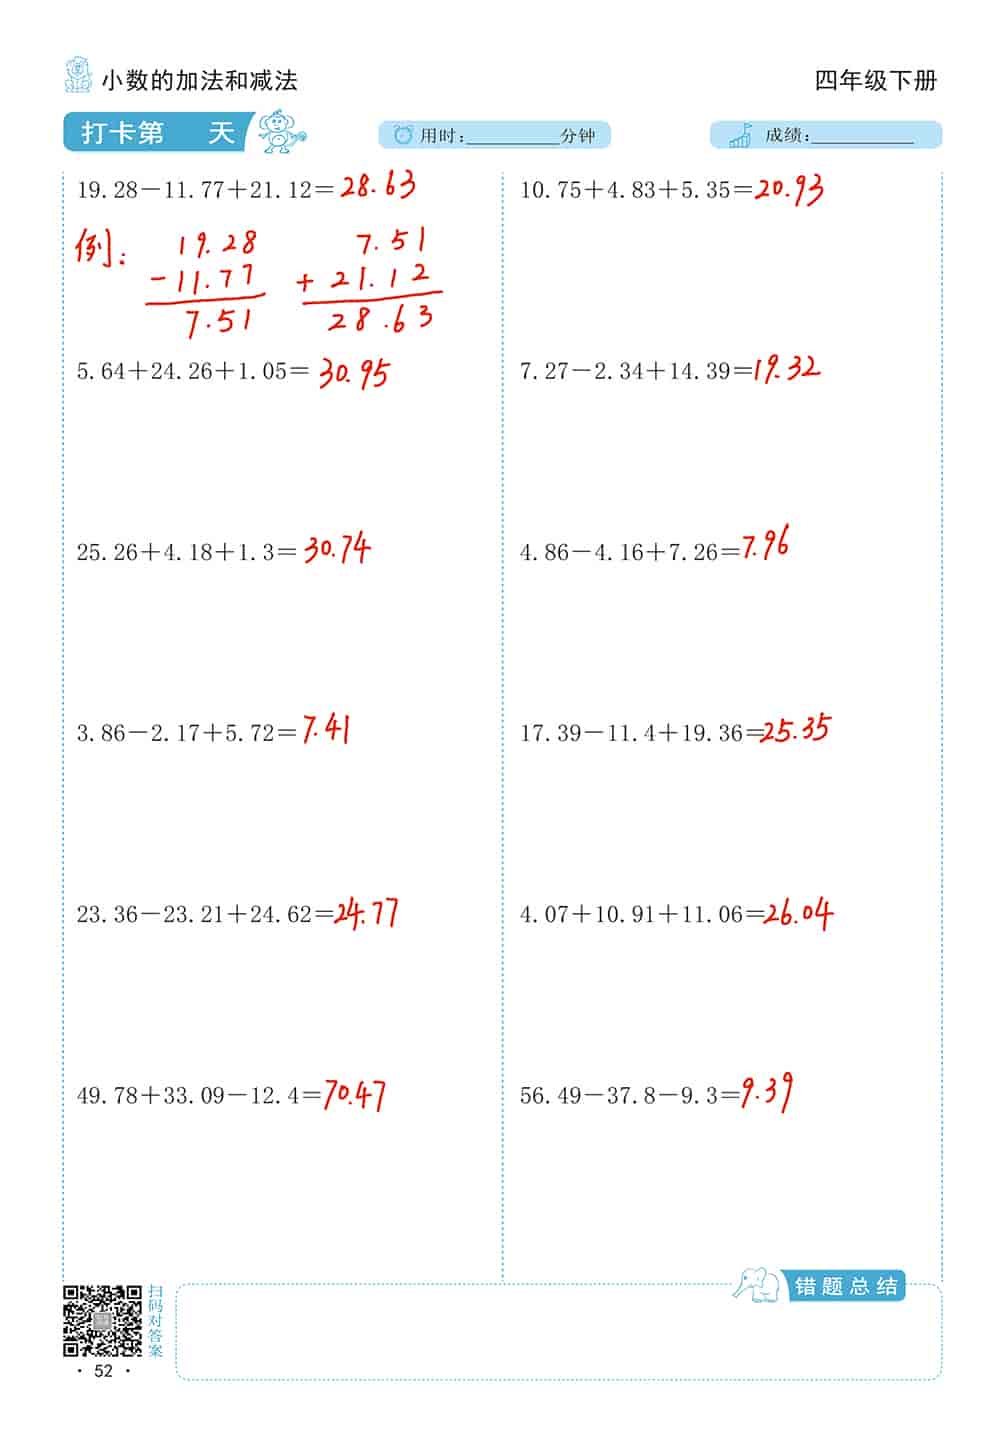 小数的加法和减法 四年级下册
打卡第 天 用时:__________分钟 成绩:___________
19.28－11.77＋21.12＝28.63
例:
19.28
－11.77
7.51
7.51
＋21.12
28.63
10.75＋4.83＋5.35＝20.93
5.64＋24.26＋1.05＝30.95
7.27－2.34＋14.39＝19.32
25.26＋4.18＋1.3＝30.74
4.86－4.16＋7.26＝7.96
3.86－2.17＋5.72＝7.41
17.39－11.4＋19.36＝25.35
23.36－23.21＋24.62＝24.77
4.07＋10.91＋11.06＝26.04
49.78＋33.09－12.4＝70.47
56.49－37.8－9.3＝9.39
错题总结
扫码对答案
· 52 ·